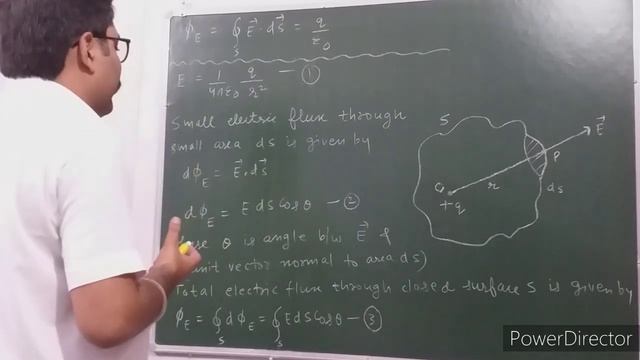 ϕ_E = ∮_S E⃗ · dS⃗ = q/ε₀
E = 1/4πε₀ q/r² — ①
Small electric flux through
small area ds is given by
dϕ_E = E⃗·dS⃗
dϕ_E = E ds Cosθ — ②
θ is angle b/w E⃗ &
unit vector normal to area ds)
Total electric flux through closed surface S is given by
ϕ_E = ∮_S dϕ_E = ∮_S E ds Cosθ — ③
S
E⃗
P
ds
r
O
+q
PowerDirector